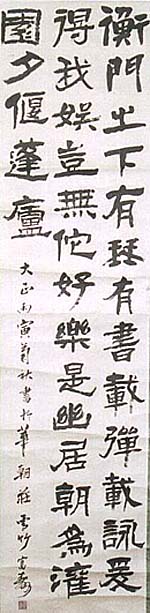 衡門之下有琴有書載彈載詠爰
得我娛豈無佗好樂是幽居朝為灌
園夕偃蓬廬
大正丙寅菊秋書於華朝莊